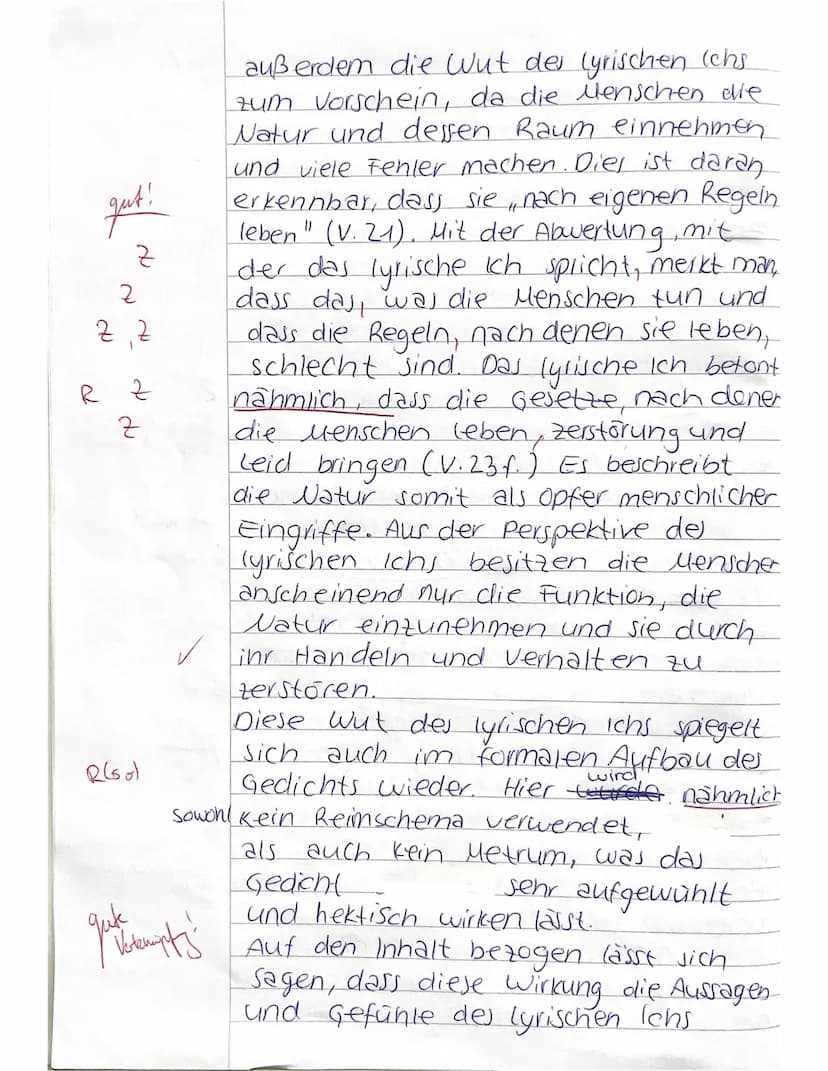 außerdem die Wut des lyrischen Ichs
zum Vorschein, da die Menschen die
Natur und dessen Raum einnehmen
und viele Fehler machen. Dies ist daran
gut! erkennbar, dass sie „nach eigenen Regeln
leben" (V. 21). Mit der Abwertung, mit
Z der das lyrische Ich splicht, merkt man,
Z dass das, was die Menschen tun und
Z, Z dass die Regeln, nach denen sie leben,
schlecht sind. Das lyrische Ich betont
R Z nähmlich, dass die Gesetze, nach denen
Z die Menschen leben, zerstörung und
Leid bringen (V. 23f.) Es beschreibt
die Natur somit als Opfer menschlicher
Eingriffe. Aus der Perspektive des
lyrischen Ichs besitzen die Menschen
anscheinend nur die Funktion, die
Natur einzunehmen und sie durch
✓ ihr Handeln und Verhalten zu
zerstören.
Diese Wut des lyrischen Ichs spiegelt
sich auch im formalen Aufbau des
R(so) Gedichts wieder. Hier wird nähmlich
sowohl kein Reimschema verwendet,
als auch kein Metrum, was das
Gedicht sehr aufgewühlt
gute Verknüpfg! und hektisch wirken lässt.
Auf den Inhalt bezogen lässt sich
sagen, dass diese Wirkung die Aussagen
und Gefühle des lyrischen Ichs